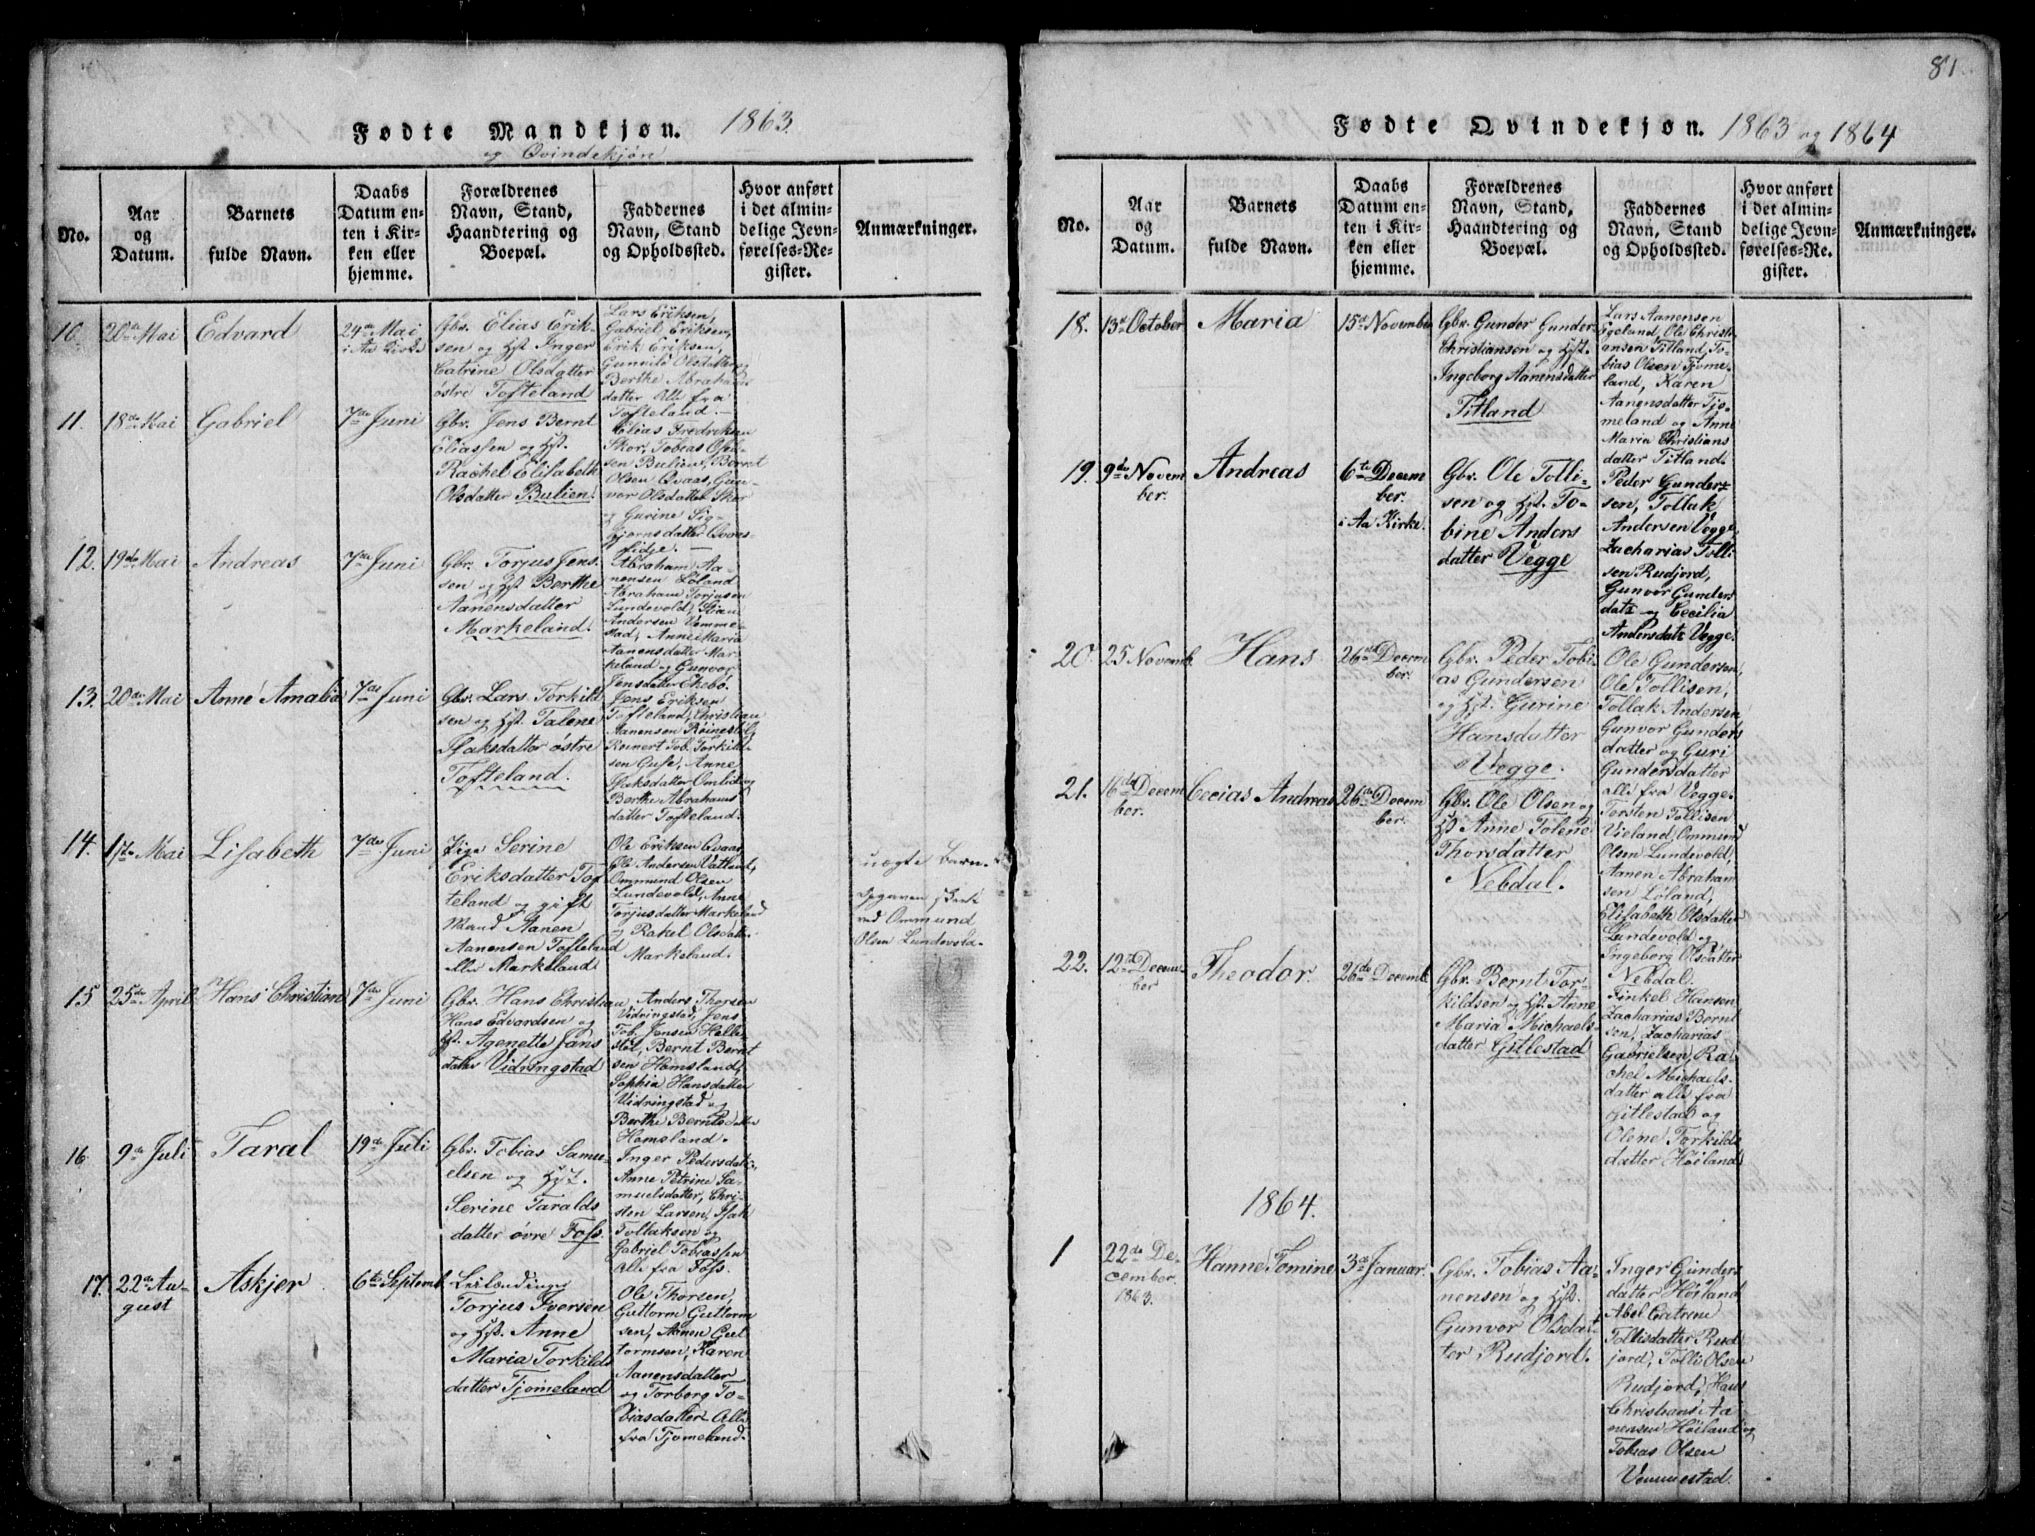 Fødte Mandkjøn. 1863.
og Qvindekjøn
No.
Aar
og
Datum.
Barnets
fulde Navn.
Daabs
Datum en-
ten i Kir-
ken eller
hjemme.
Forældrenes
Navn, Stand,
Haandtering og
Boepæl.
Faddernes
Navn, Stand
og Opholdssted.
Hvor anført
i det almin-
delige Jevn-
førelses-Re-
gister.
Anmærkninger.
10.
20de Mai
Edvard
24de Mai
i Aa Kirke
Gbr. Elias Erik-
sen og Hst. Inger
Catrine Olsdatter
østre Tofteland
Lars Eriksen,
Gabriel Eriksen,
Erik Eriksen,
Gunvild Olsdatter,
Berthe Abrahams
datter Alle fra
Tofteland.
11.
18de Mai
Gabriel
7de Juni
Gbr. Jens Bernt
Eliassen og Hst.
Rachel Elisabeth
Olsdatter Bulien.
Elias Fredriksen
Skor, Tobias
sen Bulien, Bernt
Olsen Qvaas, Gun-
vor Olsdatter Skor
og Gurine Sig-
bjørnsdatter Qvaas
12.
19de Mai
Andreas
7de Juni
Gbr. Torjus Jens-
sen og Hst Berthe
Aanensdatter
Markeland.
Abraham Aa-
nensen Løland
Abraham Torjusen
Lundevold,
Andersen Vemme-
stad, Anne Maria
Aanensdatter Mar-
keland og Gunvor
Jensdatter Ekebø.
13.
20de Mai
Anne Amalia
7de Juni
Gbr. Lars Torkild
sen og Hst. Talene
Isaksdatter østre
Tofteland.
Jens Eriksen
Tofteland, Christian
Aanensen
Reinert Tob. Torkild-
sen Guse, Anne
Isaksdatter Omlid og
Berthe Abrahams
datter Tofteland.
14.
17de Mai
Lisabeth
7de Juni
Pige Serine
Eriksdatter Tof
teland og gift
Mand Aanen
Aanensen Tofteland
eller Markeland
Ole Eriksen Qvaas
Ole Andersen Vatland,
Ommund Olsen
Lundevold, Anne
Torjusdatter Markeland
og Rakel Olsdatter
Markeland.
uægte Barn.
Opgaven skeete
ved Ommund
Olsen Lundevold.
15
25de April
Hans Christian
7de Juni
Gbr. Hans Christian
Hans Edvardsen og
Hst. Agenette Jans
datter Vidringstad
Anders Thorsen
Vidringstad, Jens
Tob. Jensen Helle-
støl, Bernt Bernt
sen Homsland,
Sophia Hansdatter
Vidringstad og
Berthe Berntsdatter
Homsland.
16
9de Juli
Taral
19de Juli
Gbr. Tobias Samu-
elsen og Hst.
Serine Taralds
datter øvre Foss.
Inger Pedersdatter,
Anne Petrine Sa-
muelsdatter, Chri-
sten Larsen, Isak
Tollaksen og
Gabriel Tobiassen
Alle fra Foss.
17.
22de Au-
gust
Askjer
6te Septemb.
Leilænding
Torjus Iversen
og Hst. Anne
Maria Torkilds
datter Tjomeland
Ole Thorsen,
Guttorm Guttorm
sen, Aanen Gut
tormsen, Karen
Aanensdatter
og Torborg To-
biasdatter Alle
fra Tjomeland.
81
Fødte Qvindekjøn. 1863 og 1864
No.
Aar
og
Datum.
Barnets
fulde Navn.
Daabs
Datum en-
ten i Kir-
ken eller
hjemme.
Forældrenes
Navn, Stand,
Haandtering og
Boepæl.
Faddernes
Navn, Stand
og Opholdssted.
Hvor anført
i det almin-
delige Jevn-
førelses-Re-
gister.
Anmærkninger.
18.
13de October
Maria
15de November
Gbr. Gunder Gunder
Christiansen og Hst.
Ingeborg Aanensdatter
Titland
Lars Aanensen
Egeland, Ole Christi-
ansen Titland, To-
bias Olsen Tjome-
land, Karen
Aanensdatter Tjo-
meland og Anne
Maria Christians
datter Titland.
19.
9de Novem
ber.
Andreas
6te Decem
ber.
i Aa Kirke.
Gbr. Ole Tolli-
sen og Hst. To-
bine Anders
datter Vegge
Peder Gunder-
sen, Tollak
Andersen Vegge,
Zacharias Tolli
sen Rudjord,
Gunvor Gunders
datr og Cecilia
Andersdatr Vegge.
20.
25 Novemb.
Hans
26de Decem
ber.
Gbr. Peder Tobi
as Gundersen
og Hst. Gurine
Hansdatter
Vegge.
Ole Gundersen,
Ole Tollisen,
Tollak Andersen
Gunvor Gunders
datter og Guri
Gundersdatter
alle fra Vegge.
21.
16de Decem
ber.
Cecias Andreas
26de Decem
ber.
Gbr. Ole Olsen og
Hst Anne Tolene
Thorsdatter
Nebdal.
Torsten Tollisen
Vieland, Ommund
Olsen Lundevold,
Aanen Abraham
sen Løland,
Elisabeth Olsdatter
Lundevold og
Ingeborg Olsdatter
Nebdal.
22.
12te Decem-
ber
Theodor.
26de Decemb.
Gbr. Bernt Tor-
kildsen og Hst. Anne
Maria Michaels-
datter Gitlestad
Finkel Hansen
Zacharias Bernt
sen, Zacharias
Gabrielsen, Ra-
chel Michaels-
datter alle fra
Gitlestad og
Olene Torkilds
datter Høiland
1864.
1
22de De-
cember.
1863.
Hanne Tomine
3de Januar.
Gbr. Tobias Aa-
nensen og Hst.
Gunvor Olsdat-
ter Rudjord.
Inger Gunders
datter Høiland
Abel Catrine
Tollisdatter Rud
jord, Tolli Olsen
Rudjord, Hans
Christian Aa-
nensen Høiland og
Tobias Olsen
Vemmestad.